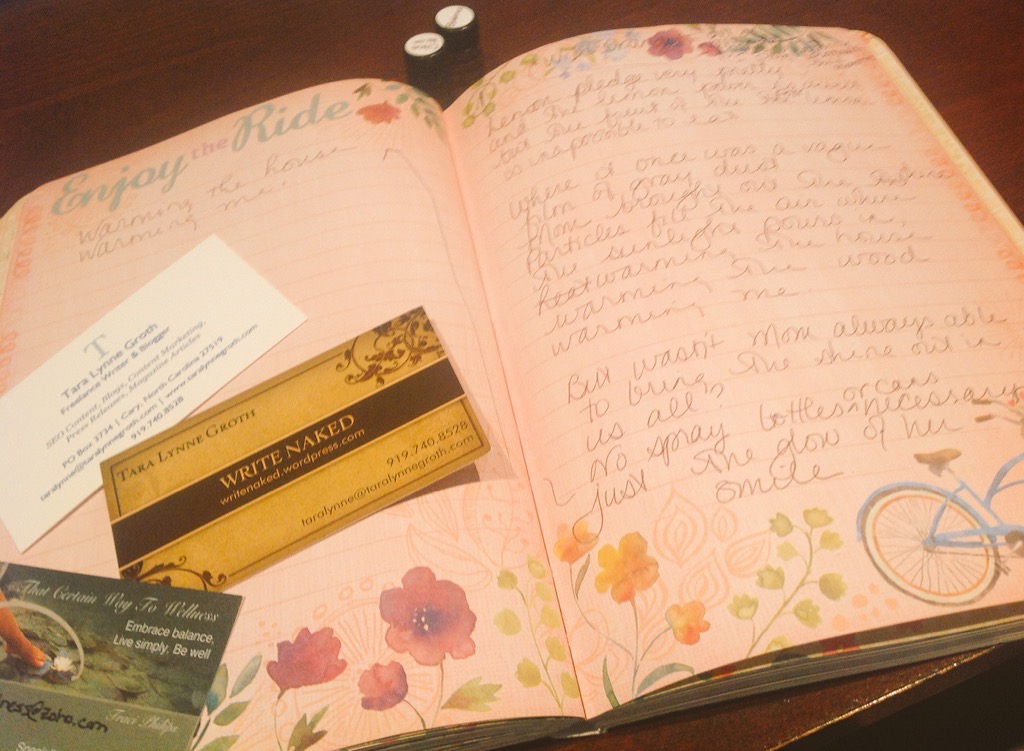 Enjoy the Ride
Warming the house
warming me.
T
Tara Lynne Groth
Freelance Writer & Blogger
SEO Content, Blogs, Content Marketing,
Press Releases, Magazine Articles
PO Box 3734 | Cary, North Carolina 27519
919.740.8528
taralynne@taralynnegroth.com | www.taralynnegroth.com
TARA LYNNE GROTH
WRITE NAKED
writenaked.wordpress.com
919.740.8528
taralynne@taralynnegroth.com
That Certain Way To Wellness
Embrace balance,
Live simply, Be well
ness@zoho.com
Traci Philips
Lemon pledge very pretty
and the lemon flower
but the fruit of the lemon
is impossible to eat
where it once was a vague
film of gray dust
Mom brought out the shine
Particles fill the air where
the sunlight pours in,
heat warming the house
warming the wood
warming me.
But wasn't Mom always able
to bring the shine out in
us all?
No spray bottles or cans necessary
just the glow of her
smile